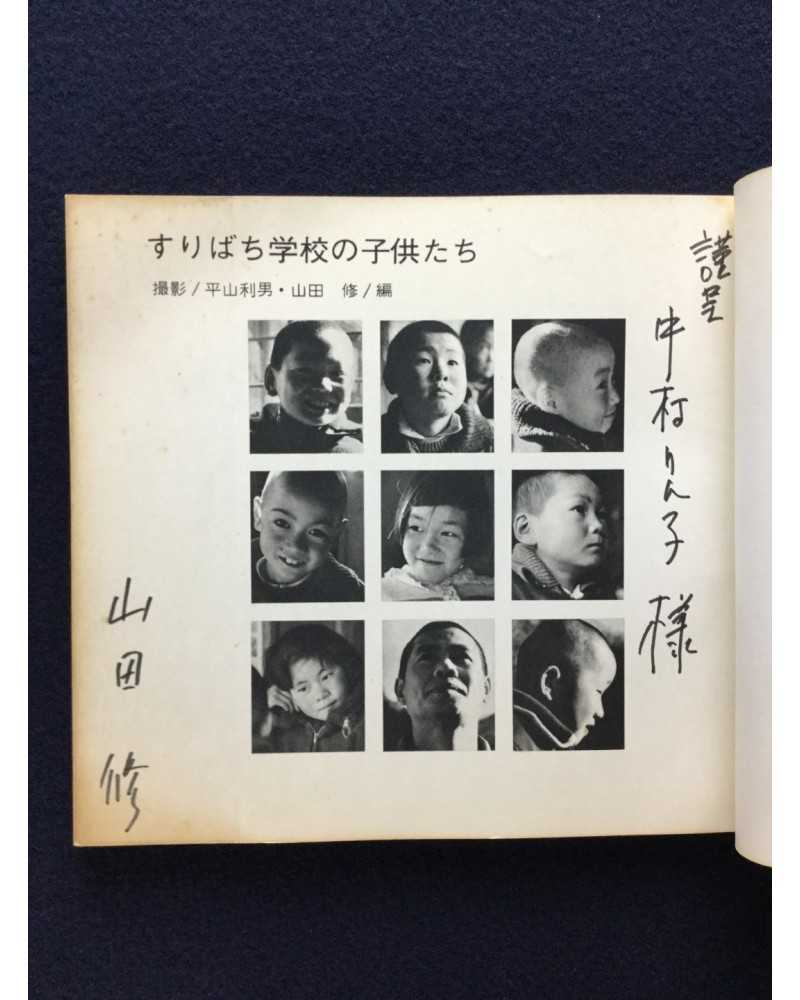 すりばち学校の子供たち
撮影/平山利男・山田　修/編
謹呈
中村りん子 様
山田 修